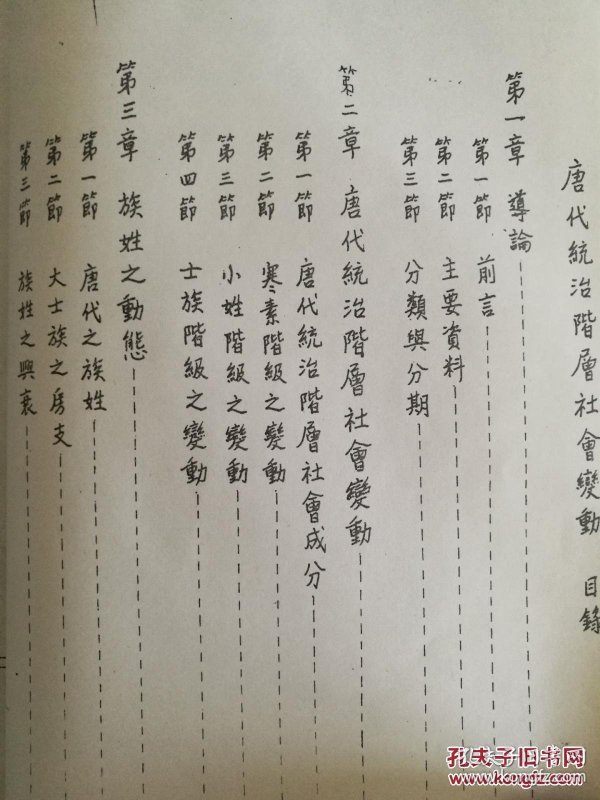 唐代統治階層社會變動 目錄
第一章 導論
第一節 前言
第二節 主要資料
第三節 分類與分期
第二章 唐代統治階層社會變動
第一節 唐代統治階層社會成分
第二節 寒素階級之變動
第三節 小姓階級之變動
第四節 士族階級之變動
第三章 族姓之動態
第一節 唐代之族姓
第二節 大士族之房支
第三節 族姓之興衰
孔夫子旧书网
www.kongfz.com